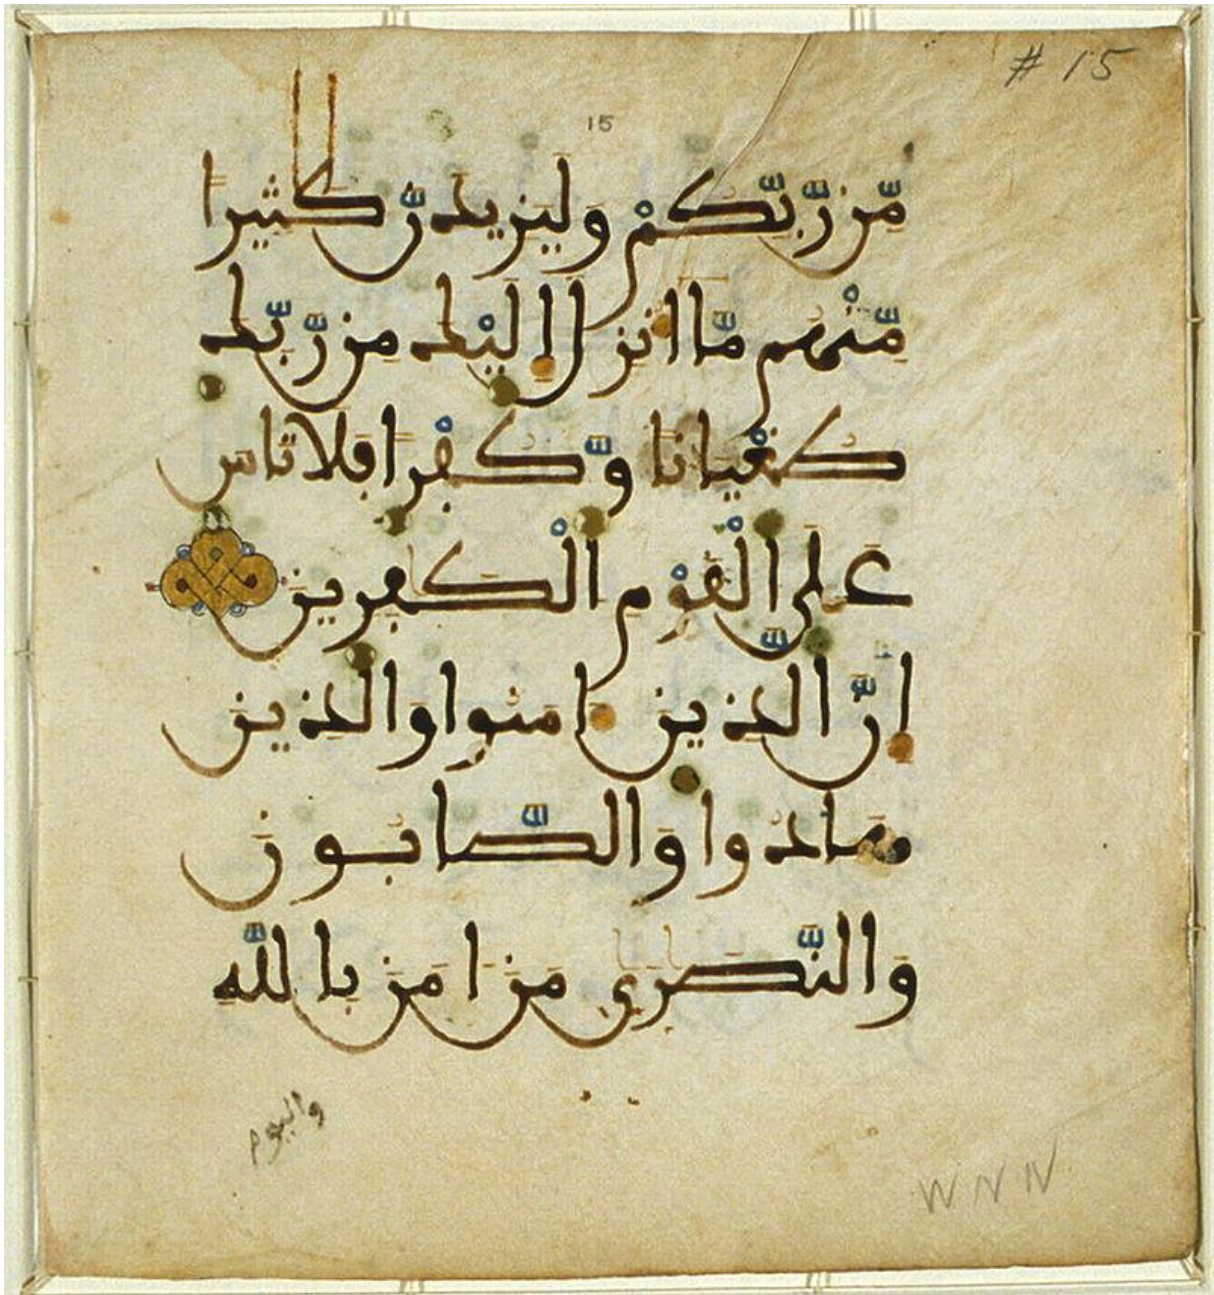 # 15
15
مِّن رَّبِّكُمْ وَلَيَزِيدَنَّ كَثِيرًا
مِّنْهُم مَّا أُنزِلَ إِلَيْكَ مِن رَّبِّكَ
طُغْيَانًا وَّكُفْرًا فَلَا تَاسَ
عَلَى الْقَوْمِ الْكَافِرِينَ
إِنَّ الَّذِينَ ءَامَنُوا وَالَّذِينَ
هَادُوا وَالصَّابُونَ
وَالنَّصَارَى مَنَ ـامَنَ بِاللَّهِ
واليوم
W N IV